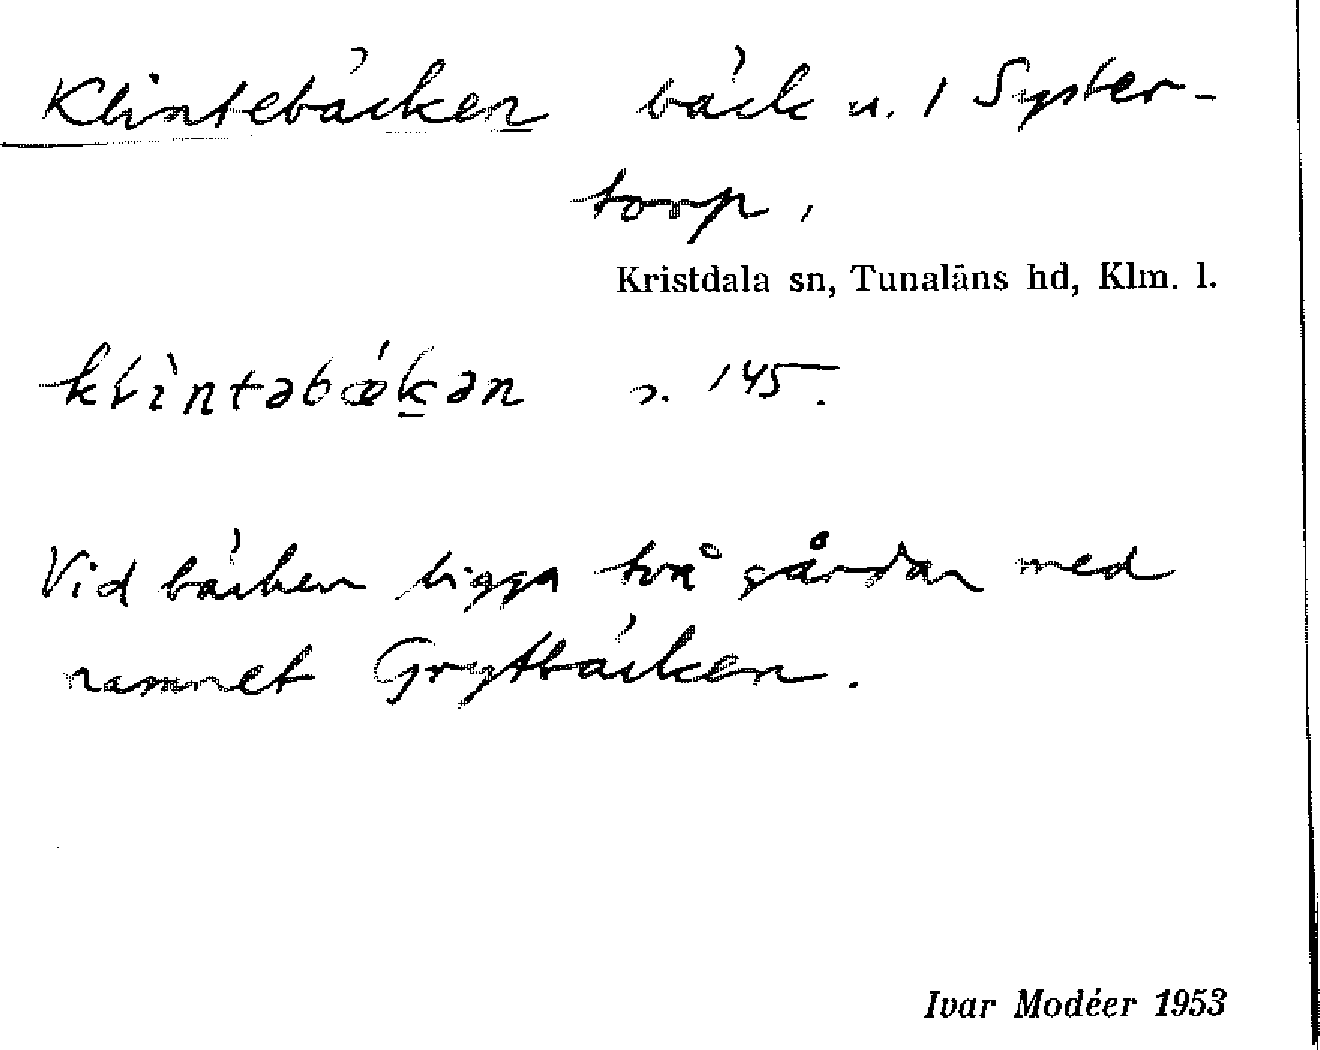 Klintebäcken bäck u. 1 Syster-
torp,
Kristdala sn, Tunaläns hd, Klm. l.
klìntəbǽkən s. 145.
Vid bäcken ligga två gårdar med
namnet Grytbäcken.
Ivar Modéer 1953